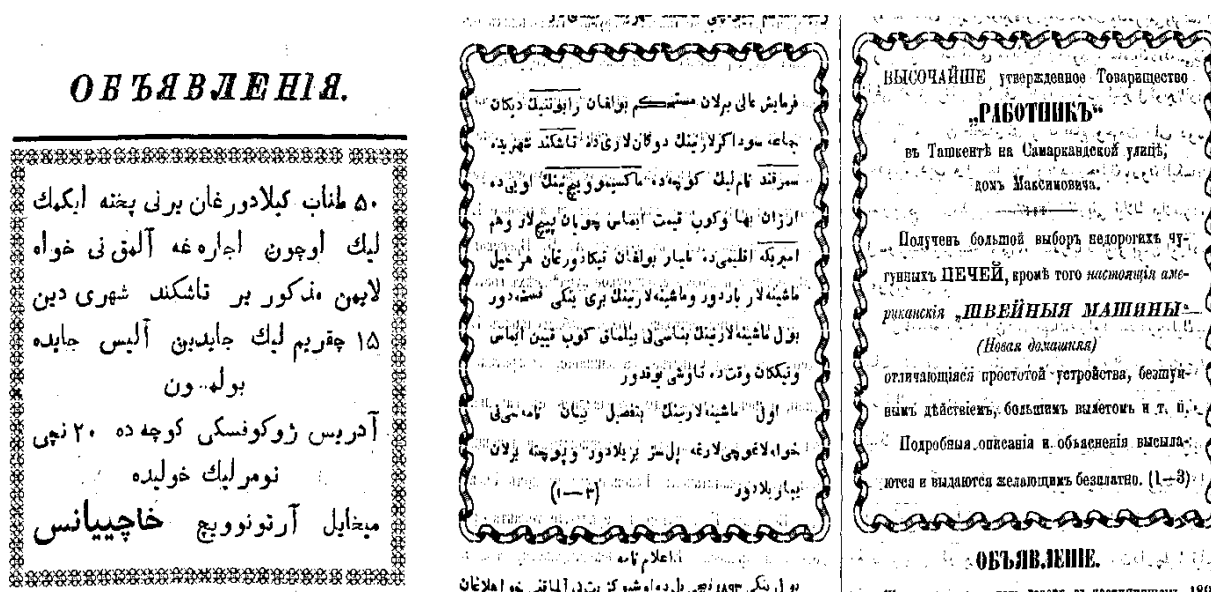 ОБЪЯВЛЕНІЯ.
۵۰ طناب كیلادورغان یرنی پخته ایكمك
لیك اوچون اجاره غه آلمق نی خواه
لایمن مذكور یر تاشكند شهری دین
۱۵ چقریم لیك جایدین آلیس جایده
بولمسون
آدریس ژوكوفسكی كوچه ده ۲۰ نچی
نومرلیك خولیده
میخاییل آرتونوویچ خاچییانس
فرمایش عالی برلان مستحكم بولغان رابوتنیك دیكان
جماعه سوداكرلارنینك دوكان لاری ده تاشكند شهریده
سمرقند نام لیك كوچه ده ماكسیموویچ نینك اویی ده
ارزان بها وكوب قیمت ایماس چویان پیچ لار وهم
امیریكه اقلیمی ده طیار بولغان تیكادورغان هر خیل
ماشینه لار باردور وماشینه لارنینك بری ینكی
بول ماشینه لارنینك بناسی نی بیلماق كوب قیین ایماس
وتیككان وقت ده تاوشی یوقدور
اول ماشینه لارنینك بتفصیل بیان نامه سی نی
خواه لاغوچی لارغه پل سز بریلادور و پوچته برلان
ییباریلادور (۳—۱)
اعلام نامه
ВЫСОЧАЙШЕ утвержденное Товарищество
„РАБОТНИКЪ“
въ Ташкентѣ на Самаркандской улицѣ,
домъ Максимовича.
Полученъ большой выборъ недорогихъ чу-
гунныхъ ПЕЧЕЙ, кромѣ того настоящія аме-
риканскія „ШВЕЙНЫЯ МАШИНЫ“
(Новая домашняя)
отличающіяся простотой устройства, безшум-
нымъ дѣйствіемъ, большимъ вылетомъ и т. п.
Подробныя описанія и объясненія высыла-
ются и выдаются желающимъ безплатно. (1—3)
ОБЪЯВЛЕНІЕ.